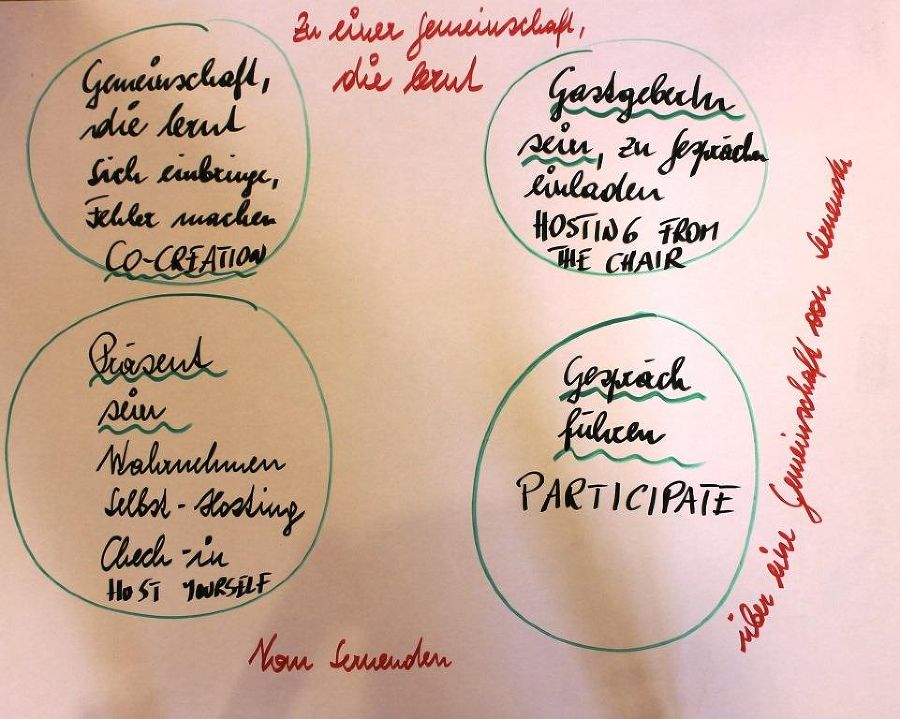 Zu einer Gemeinschaft,
die lernt
Gemeinschaft,
die lernt
Sich einbringe,
Fehler machen
CO-CREATION
GastgeberIn
sein, zu Gesprächen
einladen
HOSTING FROM
THE CHAIR
Präsent
sein
Wahrnehmen
Selbst-Hosting
Check-in
HOST YOURSELF
Gespräch
führen
PARTICIPATE
über eine Gemeinschaft von Lernende
Vom Lernenden